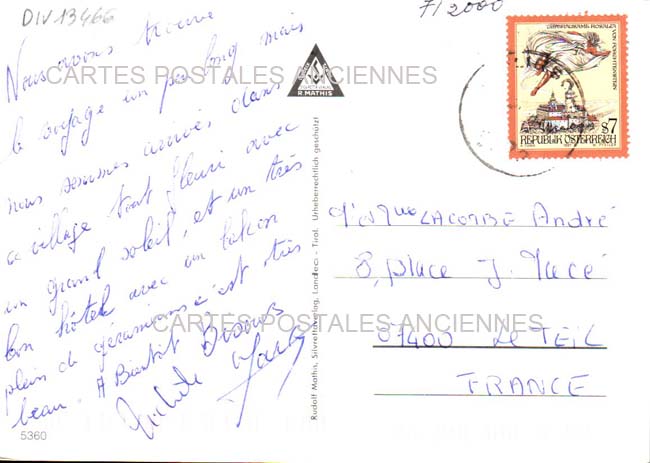 DIV13466
7/2000
Nous avons trouvé
le voyage un peu long mais
nous sommes arrivés dans
ce village tout fleuri avec
un grand soleil, et un très
bon hôtel avec un balcon
plein de geraniums c'est très
beau. A Bientôt Bisous
CARTES POSTALES ANCIENNES
CARTES POSTALES ANCIENNES
R.MATHIS
Rudolf Mathis, Silvrettaverlag, Landeck - Tirol. Urheberrechtlich geschützt
5360
S7
REPUBLIK ÖSTERREICH
LACOMBE André
8, place J. Macé
07400 LE TEIL
FRANCE